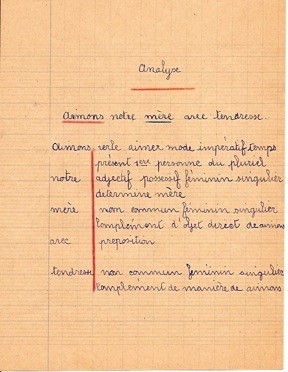 Analyse
Aimons notre mère avec tendresse.
Aimons verbe aimer mode impératif temps
présent 1ère personne du pluriel
notre adjectif possessif féminin singulier
détermine mère
mère nom commun féminin singulier
complément d'objet direct de aimons
avec préposition
tendresse nom commun féminin singulier
complément de manière de aimons